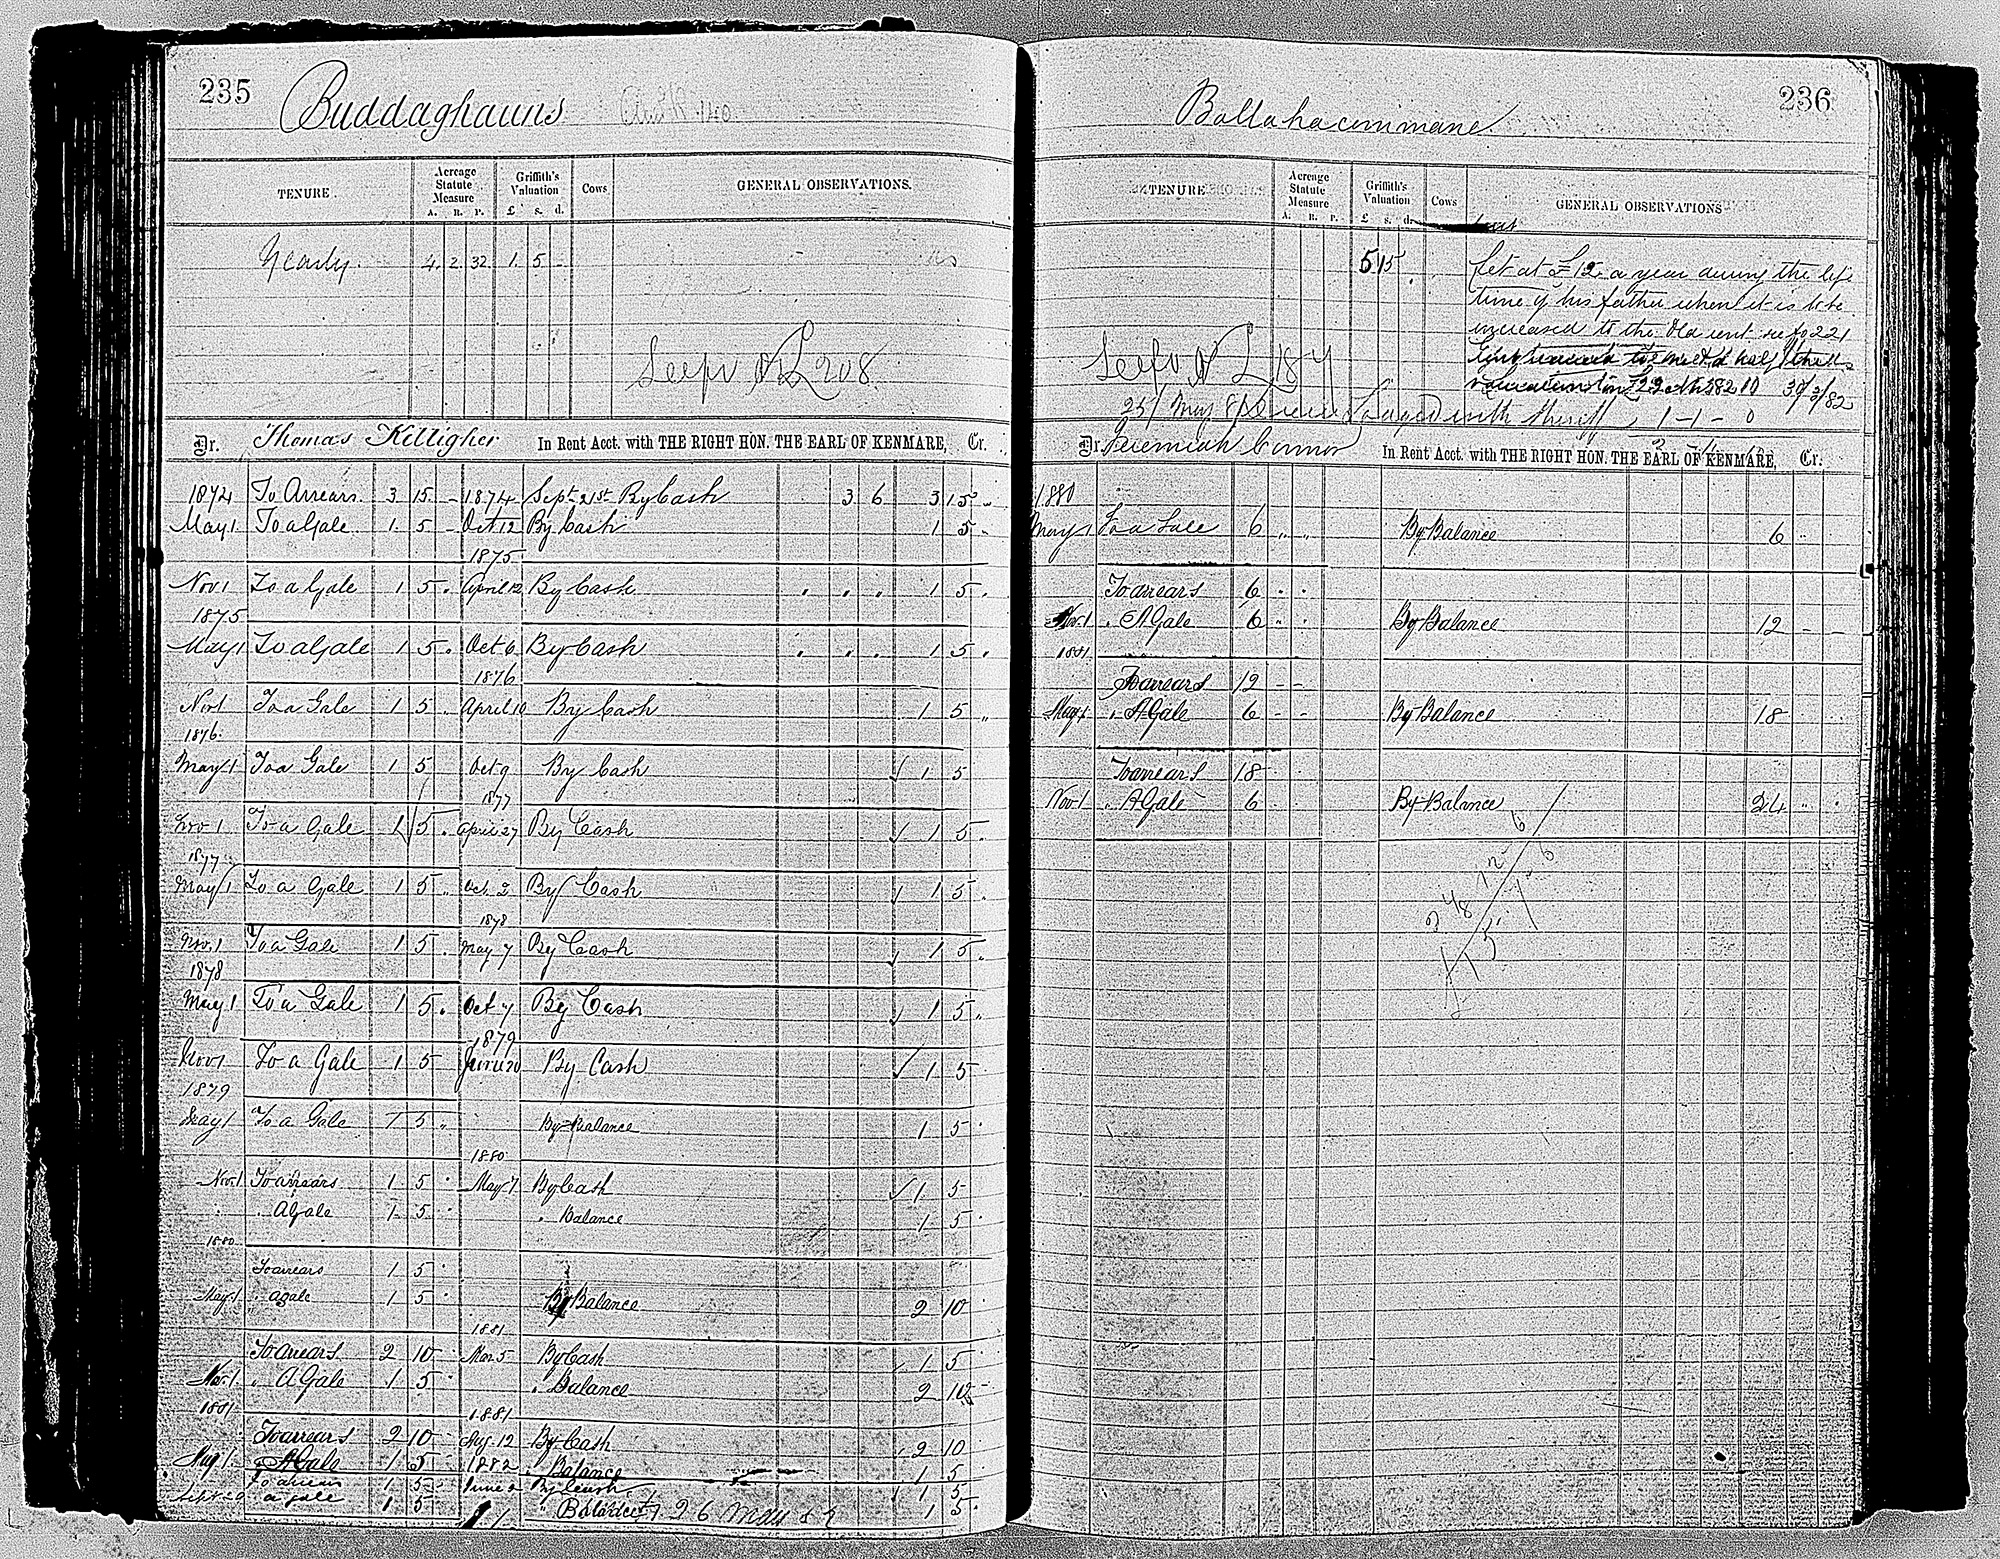 235
Buddaghauns
TENURE.
Acreage Statute Measure
A. R. P.
Griffith's Valuation
£ s. d.
Cows
GENERAL OBSERVATIONS.
Yearly. 4. 2. 32 1. 5 -
See for L 208
Dr. Thomas Killigher In Rent Acct. with THE RIGHT HON. THE EARL OF KENMARE, Cr.
1874 To Arrears 3 15 - 1874 Sept 21st By Cash 3 6 3 15 "
May 1 To a Gale 1 5 - Oct 12 By Cash 1 5 "
1875
Nov 1 To a Gale 1 5 . April 12 By Cash . . . 1 5 .
1875
May 1 To a Gale 1 5 . Oct 6 By Cash . . . 1 5 .
1876
Nov 1 To a Gale 1 5 April 10 By Cash 1 5 "
1876
May 1 To a Gale 1 5 Oct 9 By Cash ✓ 1 5
1877
Nov 1 To a Gale 1 5 . April 27 By Cash ✓ 1 5 .
1877
May 1 To a Gale 1 5 " Oct 2 By Cash ✓ 1 5 .
1878
Nov. 1 To a Gale 1 5 . May 7 By Cash ✓ 1 5 .
1878
May 1 To a Gale 1 5 . Oct 7 By Cash ✓ 1 5 "
1879
Nov 1 To a Gale 1 5 June 20 By Cash ✓ 1 5
1879
May 1 To a Gale 1 5 " By Balance 1 5 .
1880
Nov. 1 To arrears 1 5 . May 7 By Cash ✓ 1 5
" A Gale 1 5 . " Balance 1 5 .
1880
To arrears 1 5 .
May 1 " a gale 1 5 . By Balance 2 10 .
1881
To arrears 2 10 Mar 5 By Cash ✓ 1 5
Nov. 1 " A Gale 1 5 " Balance 2 10
1881 1881
To arrears 2 10 Aug. 12 By Cash 2 10
May 1 " A Gale 1 5 1882 " Balance 1 5
To arrears 1 5 June 2 By Cash 1 5
a gale 1 5 Balance 26 May 1 5
236
Ballahacommane
TENURE
Acreage Statute Measure
A. R. P.
Griffith's Valuation
£ s. d.
Cows
GENERAL OBSERVATIONS
5 15 . Let at £12 a year during the life
time of his father when it is to be
increased to the Old rent 221
30/3/82
See for L 187
25/ May lodged with Sheriff 1 - 1 - 0
Dr. Jeremiah Connor In Rent Acct. with THE RIGHT HON. THE EARL OF KENMARE, Cr.
1880
May 1 To a Gale 6 " " By Balance 6 "
To arrears 6 . .
Nov. 1 " A Gale 6 " . By Balance 12 - -
1881
To arrears 12 - -
May 1 " A Gale 6 - - By Balance 18
To arrears 18 .
Nov 1 " A Gale 6 . . By Balance 24 " .